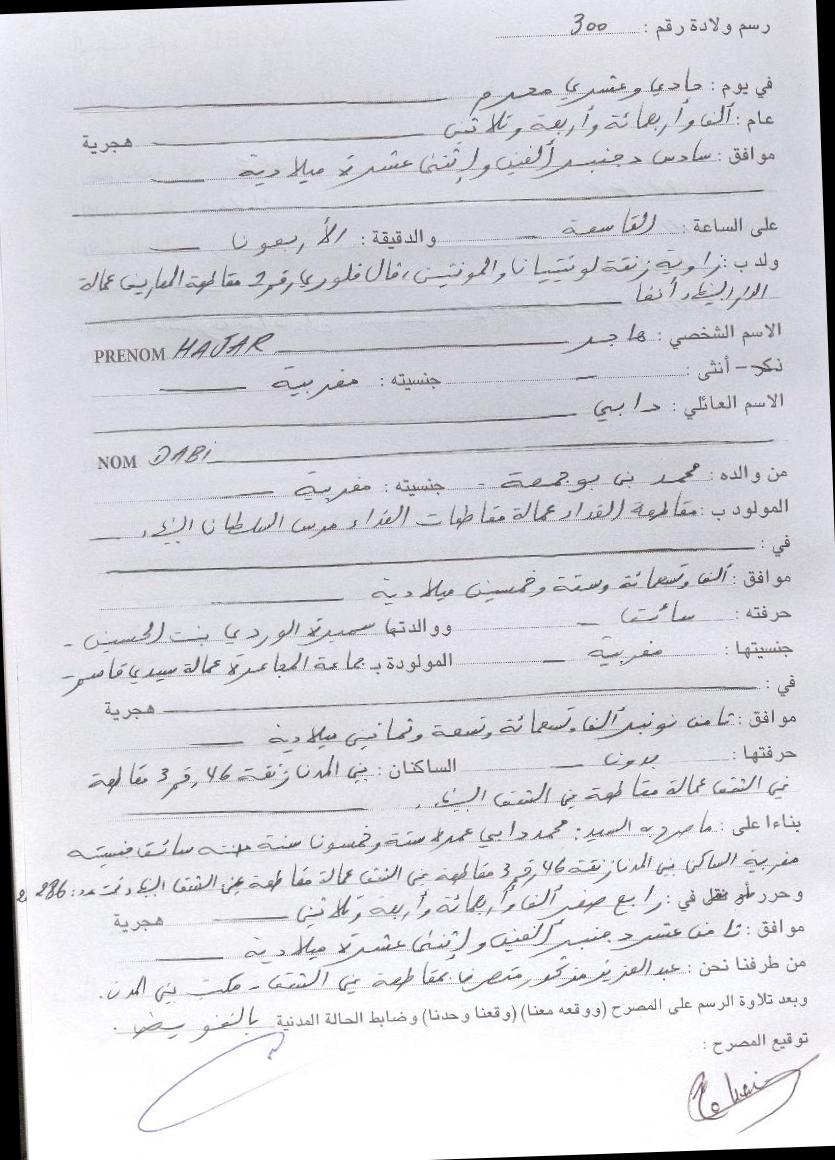 رسم ولادة رقم : 300
في يوم : حادي وعشري محرم
عام : ألف وأربعمائة وأربعة وثلاثين هجرية
موافق : سادس دجنبر ألفين وإثنى عشرة ميلادية
على الساعة : التاسعة والدقيقة : الأربعون
ولد ب : زاوية زنقة لوتيتيانا والمونتين، فال فلوري رقم 2 مقاطعة المعاريف عمالة
الدار البيضاء أنفا
الاسم الشخصي : هاجر PRENOM HAJAR
ذكر – أنثى : - جنسيته : مغربية
الاسم العائلي : دابي
NOM DABi
من والده : محمد بن بوجمعة - جنسيته : مغربية
المولود ب : مقاطعة الفداء عمالة مقاطعات الفداء مرس السلطان البيضاء
في :
موافق : ألف وتسعمائة وستة وخمسين ميلادية
حرفته : سائق - ووالدتها سميرة الوردي بنت الحسين -
جنسيتها : مغربية - المولودة ب جماعة عمالة سيدي قاسم -
في : هجرية
موافق : ثامن نونبر ألف وتسعمائة وتسعة وثمانين ميلادية
حرفتها : بدون - الساكنان : بني المدن زنقة 46 رقم 3 مقاطعة
عين الشق عمالة مقاطعة عين الشق البيضاء.
بناءا على : ما صرح به السيد : محمد دابي عمره ستة وخمسون سنة مهنته سائق جنسيته
مغربية الساكن بني المدن زنقة 46 رقم 3 مقاطعة عين الشق عمالة مقاطعة عين الشق البيضاء تحت عدد : 286
وحرر في : رابع صفر ألف وأربعمائة وأربعة وثلاثين هجرية
موافق : ثامن عشر دجنبر ألفين وإثنى عشرة ميلادية
من طرفنا نحن : عبد العزيز مذكور متصرف بمقاطعة عين الشق - مكتب بني المدن.
وبعد تلاوة الرسم على المصرح (ووقعه معنا) (وقعنا وحدنا) وضابط الحالة المدنية بالتفويض.
توقيع المصرح :